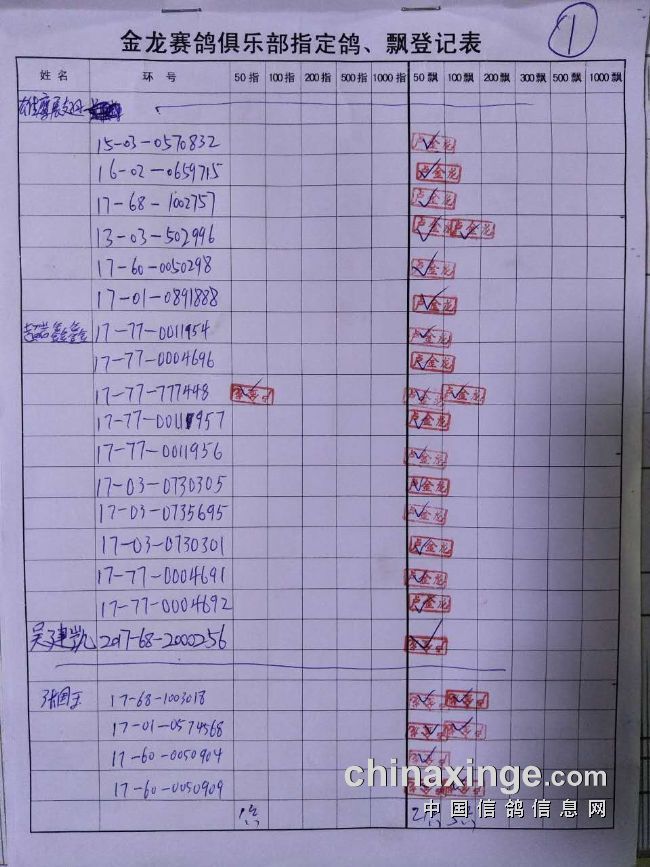 ①
金龙赛鸽俱乐部指定鸽、飘登记表
姓名 环号 50指 100指 200指 500指 1000指 50飘 100飘 200飘 300飘 500飘 1000飘
15-03-0570832 卢金龙
16-02-0659715 卢金龙
17-68-1002757 卢金龙
13-03-502996 卢金龙 卢金龙
17-60-0050298 卢金龙
17-01-0891888 卢金龙
17-77-0011954 卢金龙
17-77-0004696 卢金龙
17-77-777448 卢金龙 卢金龙
17-77-0011957 卢金龙
17-77-0011956 卢金龙
17-03-0730305 卢金龙
17-03-0735695 卢金龙
17-03-0730301 卢金龙
17-77-0004691 卢金龙
17-77-0004692 卢金龙
吴建凯 2017-68-2000256
张国玉 17-68-1003018
17-01-0574568
17-60-0050904
17-60-0050909
chinaxinge.com
中国信鸽信息网